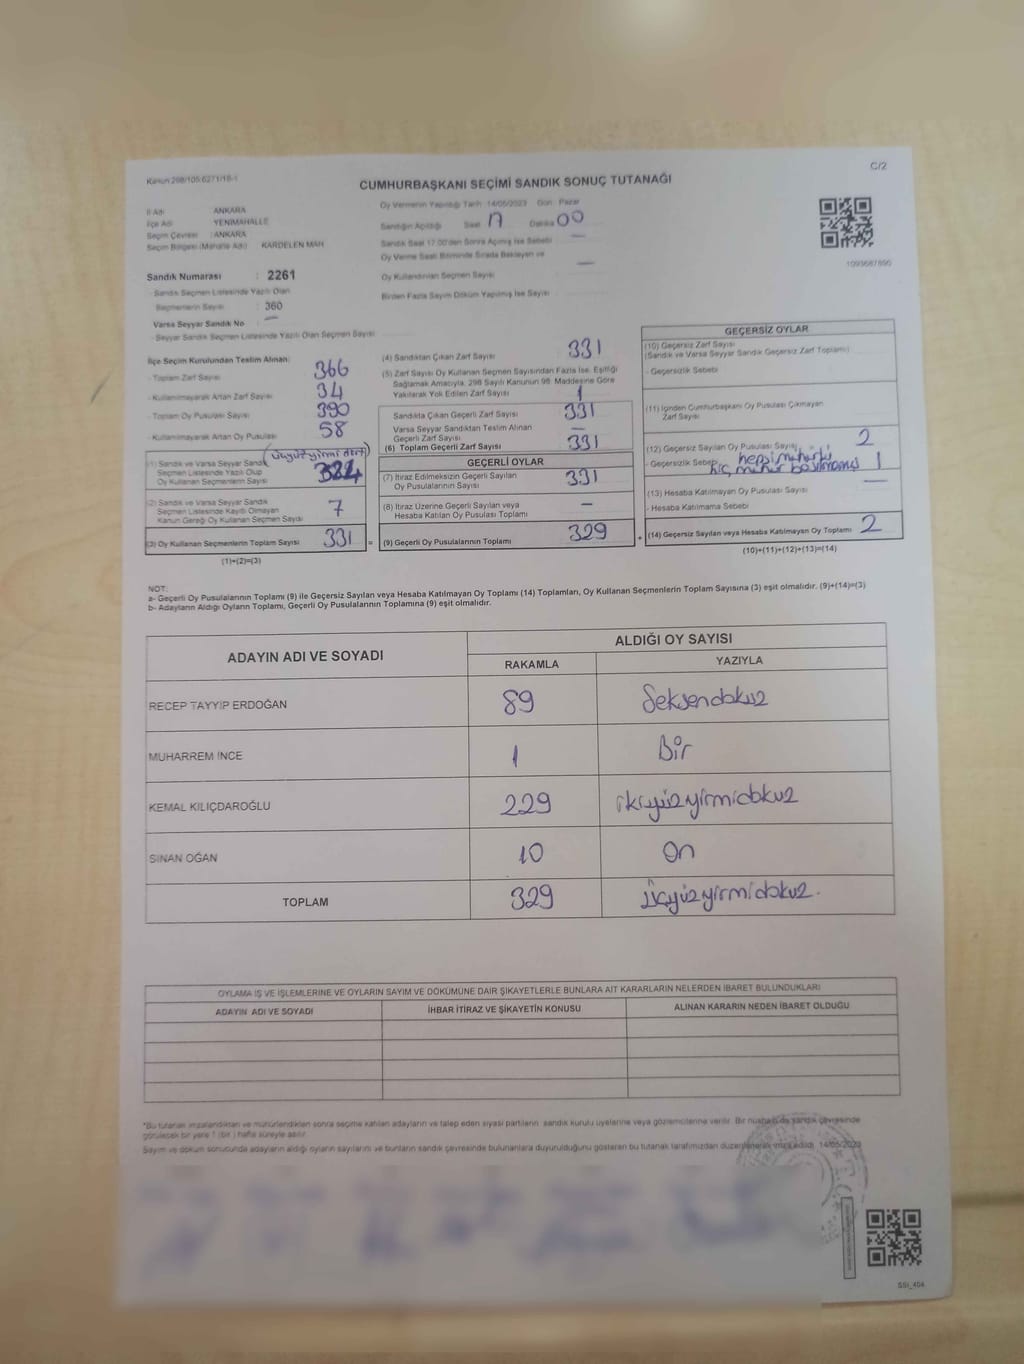 C/2
Kanun:298/105-6271/18-1
CUMHURBAŞKANI SEÇİMİ SANDIK SONUÇ TUTANAĞI
İl Adı : ANKARA
İlçe Adı : YENİMAHALLE
Seçim Çevresi : ANKARA
Seçim Bölgesi (Mahalle Adı) : KARDELEN MAH
Sandık Numarası : 2261
- Sandık Seçmen Listesinde Yazılı Olan
Seçmenlerin Sayısı : 360
Varsa Seyyar Sandık No : —
- Seyyar Sandık Seçmen Listesinde Yazılı Olan Seçmen Sayısı
Oy Vermenin Yapıldığı Tarih: 14/05/2023 Gün: Pazar
Sandığın Açıldığı Saat 17 Dakika 00
Sandık Saat 17.00'den Sonra Açılmış İse Sebebi —
Oy Verme Saati Bitiminde Sırada Bekleyen ve
Oy Kullandırılan Seçmen Sayısı —
Birden Fazla Sayım Döküm Yapılmış İse Sayısı
1093687890
İlçe Seçim Kurulundan Teslim Alınan:
- Toplam Zarf Sayısı 366
- Kullanılmayarak Artan Zarf Sayısı 34
- Toplam Oy Pusulası Sayısı 390
- Kullanılmayarak Artan Oy Pusulası 58
(üçyüzyirmi dört)
(1) Sandık ve Varsa Seyyar Sandık
Seçmen Listesinde Yazılı Olup
Oy Kullanan Seçmenlerin Sayısı 324
(2) Sandık ve Varsa Seyyar Sandık
Seçmen Listesinde Kayıtlı Olmayan
Kanun Gereği Oy Kullanan Seçmen Sayısı 7
(3) Oy Kullanan Seçmenlerin Toplam Sayısı 331 =
(1)+(2)=(3)
(4) Sandıktan Çıkan Zarf Sayısı 331
(5) Zarf Sayısı Oy Kullanan Seçmen Sayısından Fazla İse, Eşitliği
Sağlamak Amacıyla, 298 Sayılı Kanunun 98. Maddesine Göre
Yakılarak Yok Edilen Zarf Sayısı 1
Sandıkta Çıkan Geçerli Zarf Sayısı 331
Varsa Seyyar Sandıktan Teslim Alınan
Geçerli Zarf Sayısı —
(6) Toplam Geçerli Zarf Sayısı 331
GEÇERLİ OYLAR
(7) İtiraz Edilmeksizin Geçerli Sayılan
Oy Pusulalarının Sayısı 331
(8) İtiraz Üzerine Geçerli Sayılan veya
Hesaba Katılan Oy Pusulası Toplamı —
(9) Geçerli Oy Pusulalarının Toplamı 329 +
GEÇERSİZ OYLAR
(10) Geçersiz Zarf Sayısı
(Sandık ve Varsa Seyyar Sandık Geçersiz Zarf Toplamı)
- Geçersizlik Sebebi
(11) İçinden Cumhurbaşkanı Oy Pusulası Çıkmayan
Zarf Sayısı
(12) Geçersiz Sayılan Oy Pusulası Sayısı 2
- Geçersizlik Sebebi hepsi mühürlü
hiç mühür basılmamış 1
(13) Hesaba Katılmayan Oy Pusulası Sayısı —
- Hesaba Katılmama Sebebi
(14) Geçersiz Sayılan veya Hesaba Katılmayan Oy Toplamı 2
(10)+(11)+(12)+(13)=(14)
NOT:
a- Geçerli Oy Pusulalarının Toplamı (9) ile Geçersiz Sayılan veya Hesaba Katılmayan Oy Toplamı (14) Toplamları, Oy Kullanan Seçmenlerin Toplam Sayısına (3) eşit olmalıdır. (9)+(14)=(3)
b- Adayların Aldığı Oyların Toplamı, Geçerli Oy Pusulalarının Toplamına (9) eşit olmalıdır.
ADAYIN ADI VE SOYADI
ALDIĞI OY SAYISI
RAKAMLA YAZIYLA
RECEP TAYYİP ERDOĞAN 89 Seksendokuz
MUHARREM İNCE 1 Bir
KEMAL KILIÇDAROĞLU 229 ikiyüzyirmidokuz
SİNAN OĞAN 10 On
TOPLAM 329 üçyüzyirmidokuz.
OYLAMA İŞ VE İŞLEMLERİNE VE OYLARIN SAYIM VE DÖKÜMÜNE DAİR ŞİKAYETLERLE BUNLARA AİT KARARLARIN NELERDEN İBARET BULUNDUKLARI
ADAYIN ADI VE SOYADI İHBAR İTİRAZ VE ŞİKAYETİN KONUSU ALINAN KARARIN NEDEN İBARET OLDUĞU
*Bu tutanak imzalandıktan ve mühürlendikten sonra seçime katılan adayların ve talep eden siyasi partilerin sandık kurulu üyelerine veya gözlemcilerine verilir. Bir nüshası da sandık çevresinde
görülecek bir yere 1 (bir) hafta süreyle asılır.
Sayım ve döküm sonucunda adayların aldığı oyların sayılarını ve bunların sandık çevresinde bulunanlara duyurulduğunu gösteren bu tutanak tarafımızdan düzenlenerek imza edildi. 14/05/2023
SSI_404